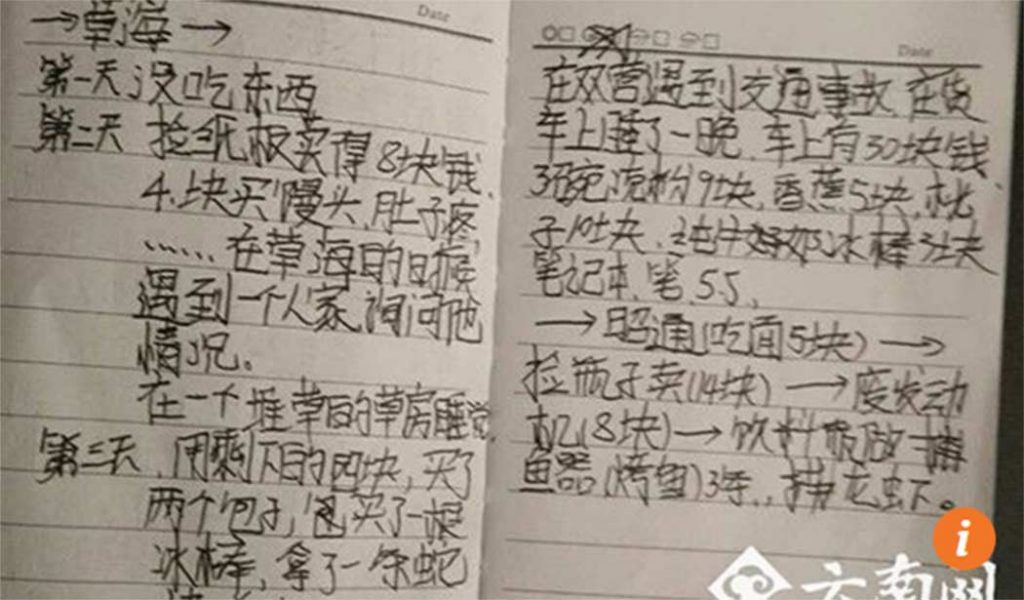 Date
→草海→
第一天没吃东西
第二天 捡纸板卖得8块钱.
4.块买馒头,肚子疼,
……在草海的时候
遇到一个人家,询问他
情况。
在一个堆草的草房睡觉
第三天,用剩下的四块,买了
两个包子,买了一根
冰棒,拿了一条蛇
Date
在双营遇到交通事故,在货
车上睡了一晚.车上有30块钱.
3碗凉粉9块,香蕉5块,桃
子10块,纯牛奶冰棒3块
笔记本.笔.5.5、
→昭通(吃面5块)→
捡瓶子卖(14块)→废发动
机(8块)→饮料瓶做捕
鱼器(烤鱼)3条.,捕龙虾。
i
云南网